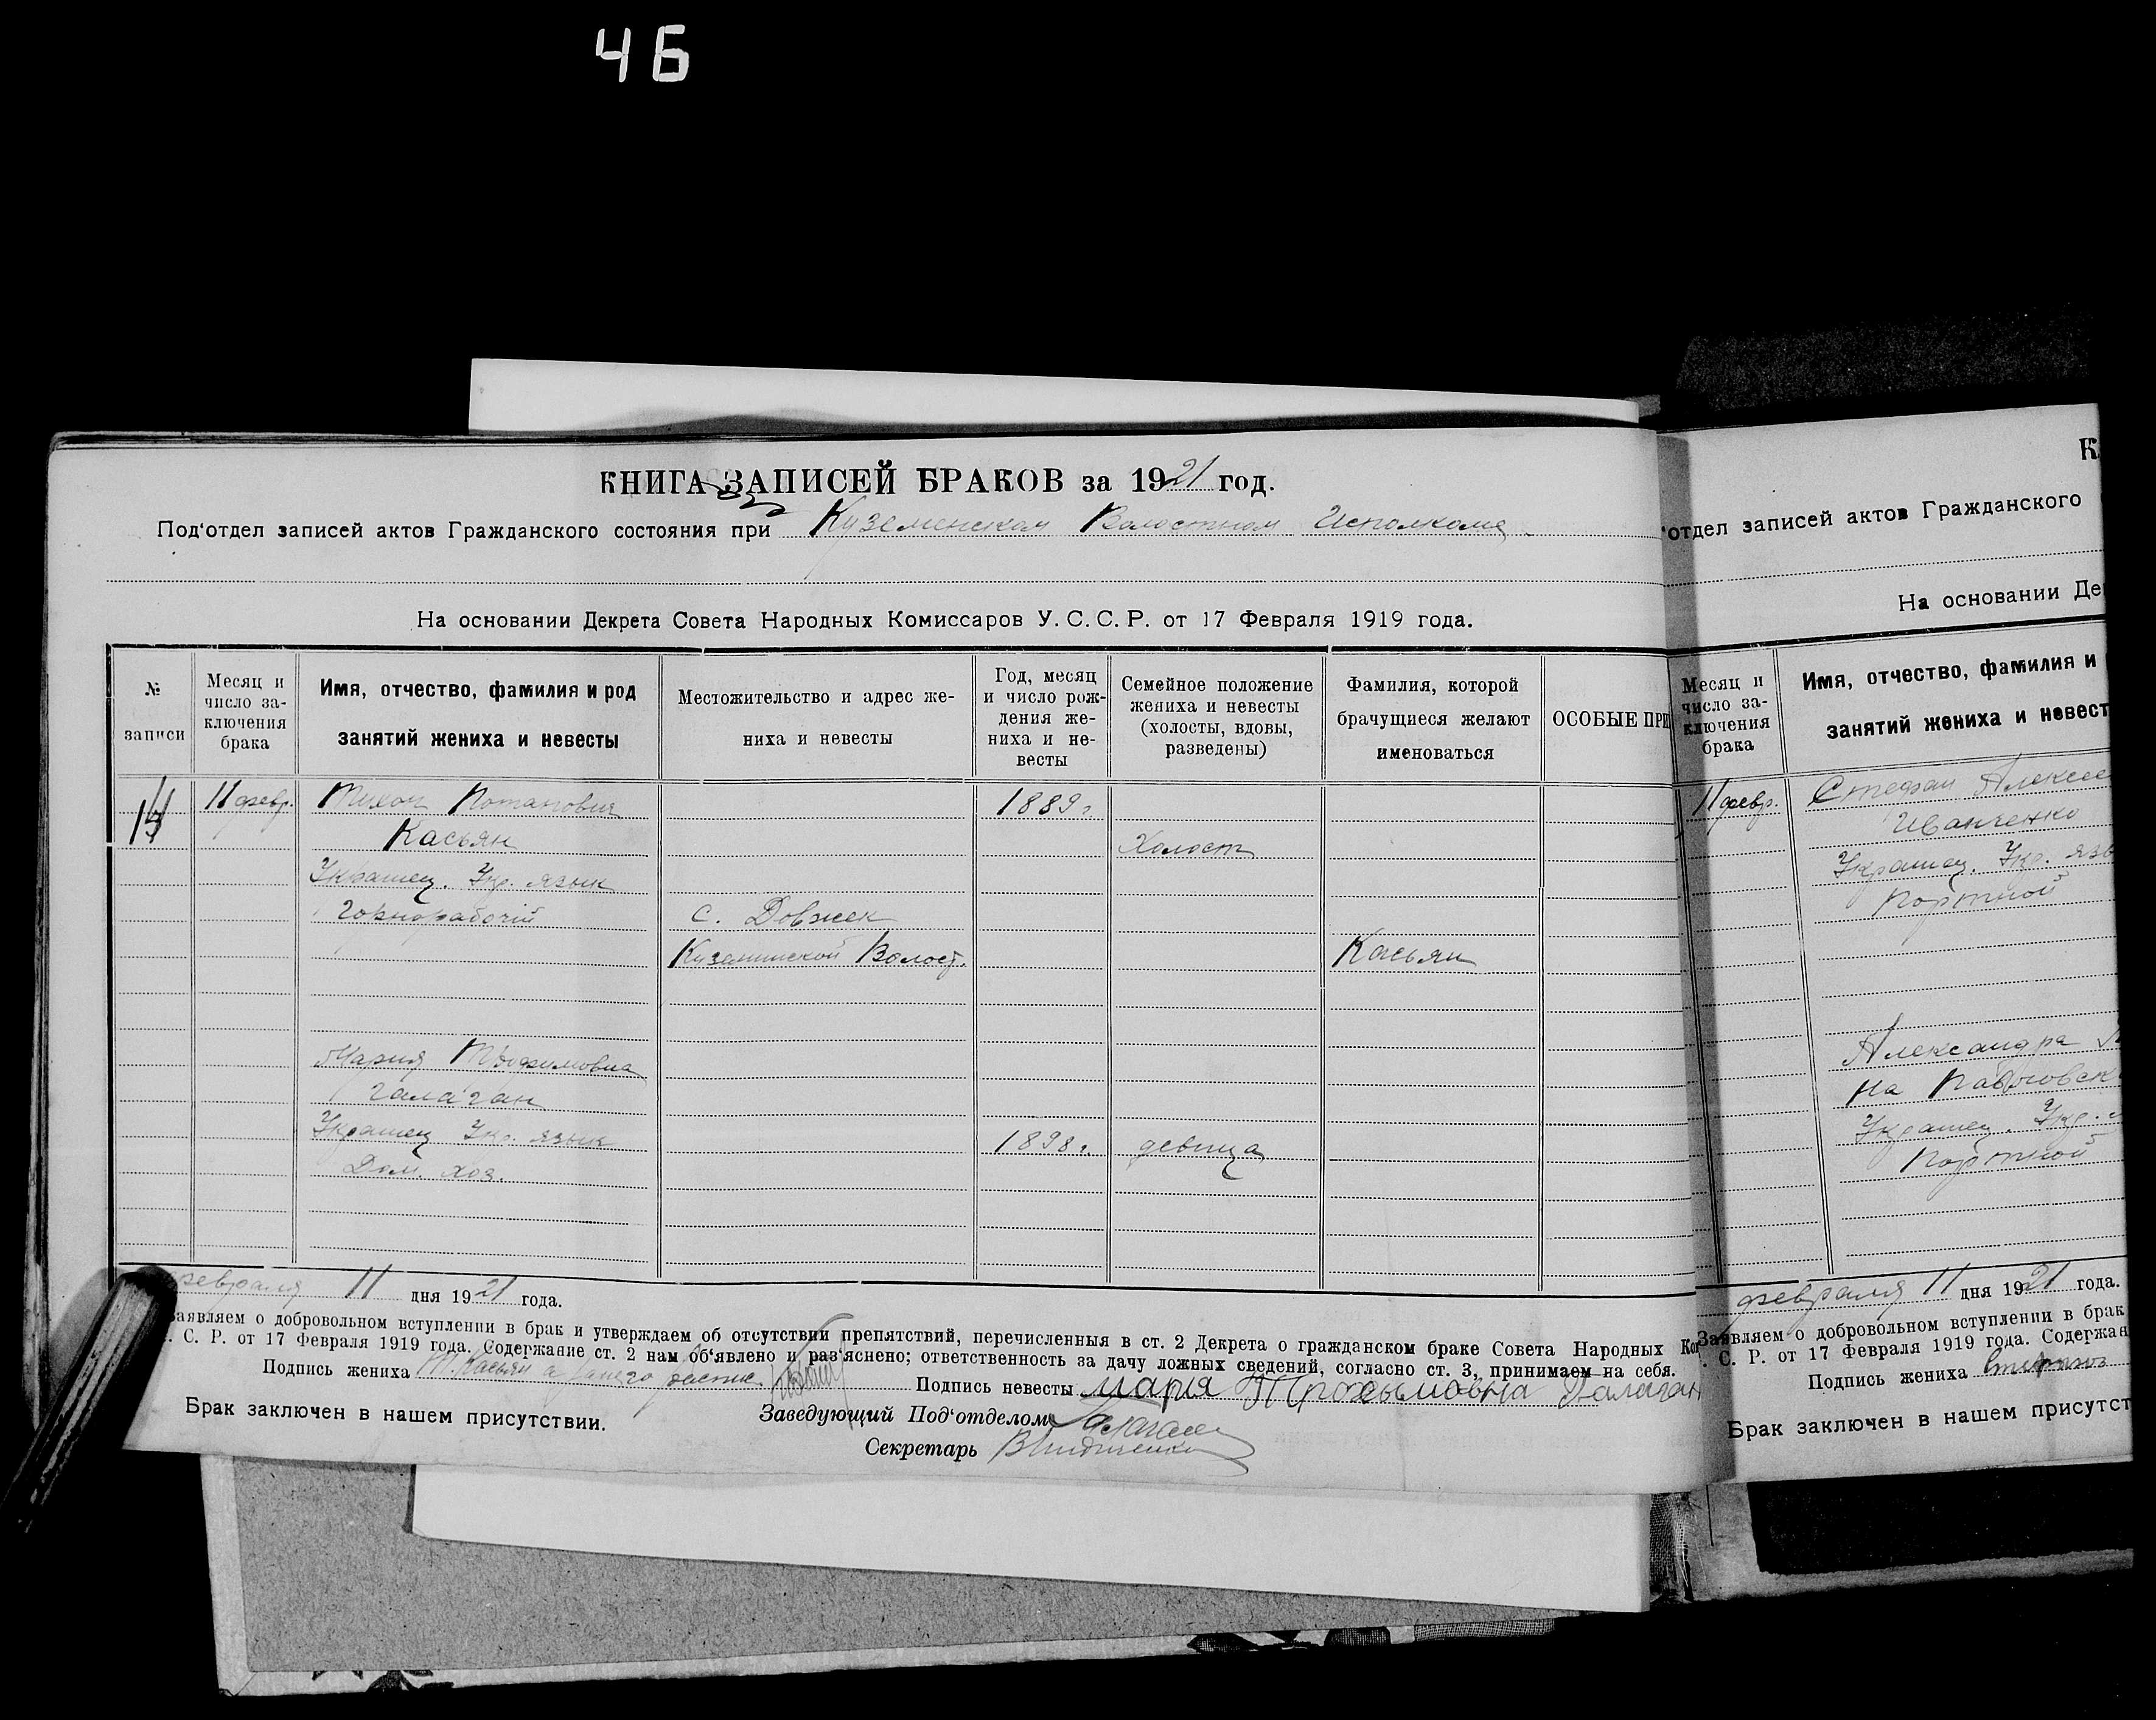 46
КНИГА ЗАПИСЕЙ БРАКОВ за 1921 год.
Под‘отдел записей актов Гражданского состояния при Куземенском Волостном Исполкоме
На основании Декрета Совета Народных Комиссаров У. С. С. Р. от 17 Февраля 1919 года.
№ записи
Месяц и число за-
ключения
брака
Имя, отчество, фамилия и род
занятий жениха и невесты
Местожительство и адрес же-
ниха и невесты
Год, месяц
и число рож-
дения же-
ниха и не-
весты
Семейное положение
жениха и невесты
(холосты, вдовы,
разведены)
Фамилия, которой
брачущиеся желают
именоваться
ОСОБЫЕ ПРИ
11 февр. Тихон Потапович 1889 г.
Касьян Холост
Украинец. Укр. язык
Горнорабочий с. Довжек
Куземинской Волост. Касьян
Мария Трофимовна
Галаган
Украинец Укр. язык 1898 г. девица
Дом. хоз.
февраля 11 дня 1921 года.
Заявляем о добровольном вступлении в брак и утверждаем об отсутствии препятствий, перечисленныя в ст. 2 Декрета о гражданском браке Совета Народных Ко
. С. Р. от 17 Февраля 1919 года. Содержание ст. 2 нам об‘явлено и раз‘яснено; ответственность за дачу ложных сведений, согласно ст. 3, принимаем на себя.
Подпись жениха Т. Касьян а
Подпись невесты мария Трохымовна Галаган
Брак заключен в нашем присутствии.
Заведующий Под‘отделом Галаган
Секретарь
К
‘отдел записей актов Гражданского
На основании Де
Месяц и
число за-
ключения
брака
Имя, отчество, фамилия и
занятий жениха и невест
11 февр. Стефан Алексее
Иванченко
Украинец. Укр. язы
Портной
Александра
на Павловск
Украинец. Укр.
Портной
февраля 11 дня 1921 года.
Заявляем о добровольном вступлении в брак
. С. Р. от 17 Февраля 1919 года. Содержан
Подпись жениха
Брак заключен в нашем присутст